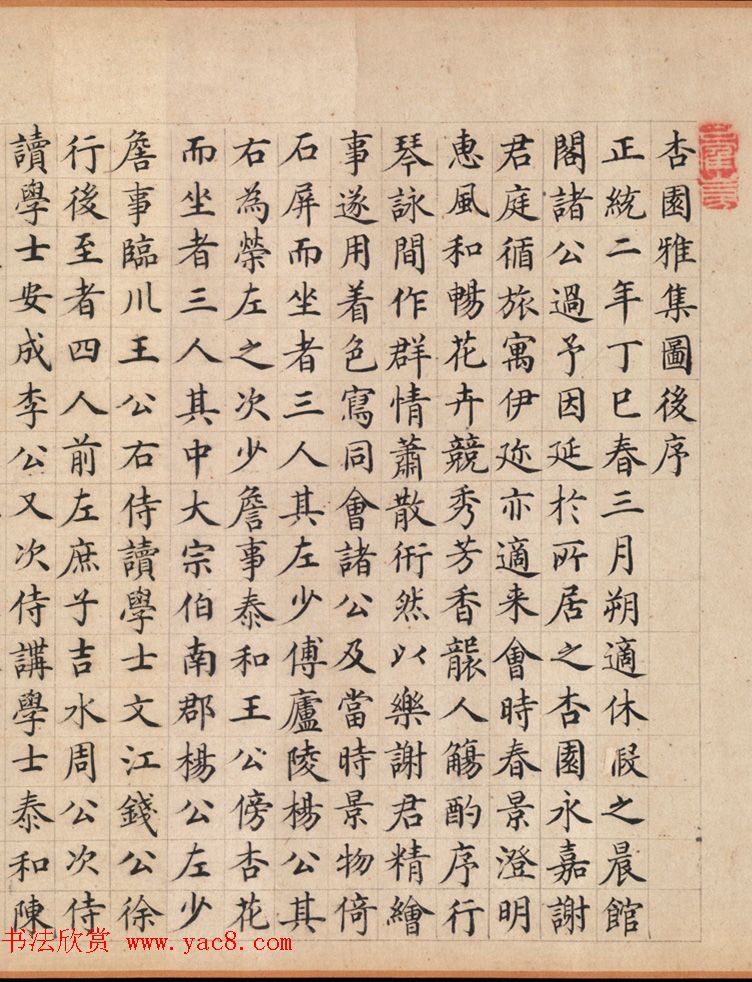 杏園雅集圖後序
正統二年丁巳春三月朔適休假之晨館
閣諸公過予因延於所居之杏園永嘉謝
君庭循旅寓伊迩亦適来會時春景澄明
惠風和暢花卉競秀芳香襲人觴酌序行
琴詠間作群情蕭散衎然以樂謝君精繪
事遂用着色寫同會諸公及當時景物倚
石屏而坐者三人其左少傅廬陵楊公其
右為榮左之次少詹事泰和王公傍杏花
而坐者三人其中大宗伯南郡楊公左少
詹事臨川王公右侍讀學士文江錢公徐
行後至者四人前左庶子吉水周公次侍
讀學士安成李公又次侍講學士泰和陳
书法欣赏 www.yac8.com